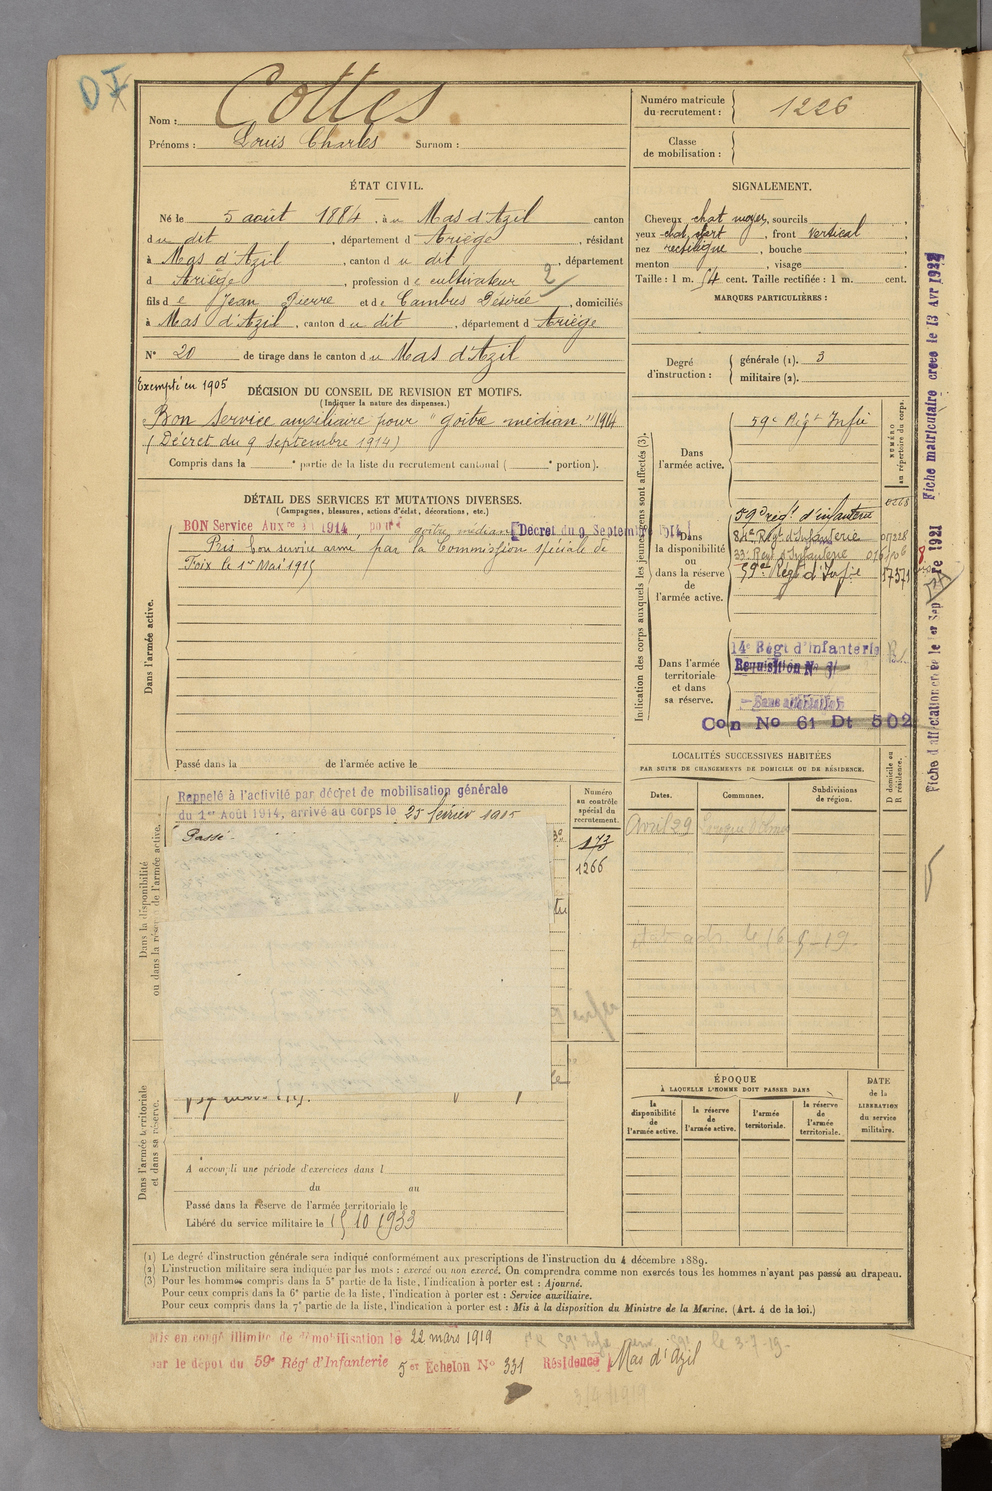 Nom : Cottes
Prénoms : Louis Charles Surnom :
Numéro matricule du recrutement : 1226
Classe de mobilisation :
ÉTAT CIVIL.
Né le 5 août 1884, à u Mas d'Azil canton
d u dit, département d Ariège, résidant
à Mas d'Azil, canton d u dit, département
d Ariège, profession d e cultivateur 2
fils d e Jean Pierre et d e Cambus Désirée, domiciliés
à Mas d'Azil, canton d u dit, département d Ariège
N° 20 de tirage dans le canton d u Mas d'Azil
SIGNALEMENT.
Cheveux chat moyen, sourcils
yeux chat, front vertical
nez rectiligne, bouche
menton, visage
Taille : 1 m. 54 cent. Taille rectifiée : 1 m. cent.
MARQUES PARTICULIÈRES :
Degré d'instruction : générale (1). 3
militaire (2).
Exempté en 1905
DÉCISION DU CONSEIL DE REVISION ET MOTIFS.
(Indiquer la nature des dispenses.)
Bon Service auxiliaire pour "goitre médian." 1914
(Décret du 9 septembre 1914)
Compris dans la e partie de la liste du recrutement cantonal ( e portion).
DÉTAIL DES SERVICES ET MUTATIONS DIVERSES.
(Campagnes, blessures, actions d'éclat, décorations, etc.)
Dans l'armée active.
BON Service Aux re 1914, pour goitre médian [Décret du 9 Septembre 1914]
Pris bon service armé par la Commission spéciale de
Foix le 1er Mai 1915
Passé dans la de l'armée active le
Indication des corps auxquels les jeunes gens sont affectés (3).
NUMÉRO au répertoire du corps.
Dans l'armée active.
59e Régt Infie
Dans la disponibilité ou dans la réserve de l'armée active.
59e régt d'infanterie
84e Régt d'Infanterie
33e Régt d'Infanterie
59e Régt d'Infie
Dans l'armée territoriale et dans sa réserve.
14e Régt d'Infanterie
Requisition N°
Sans affectation
Con No 61 Dt 502
LOCALITÉS SUCCESSIVES HABITÉES
PAR SUITE DE CHANGEMENTS DE DOMICILE OU DE RÉSIDENCE.
Dates. Communes. Subdivisions de région. D domicile ou R résidence.
Avril 29
Dans la disponibilité ou dans la réserve de l'armée active.
Rappelé à l'activité par décret de mobilisation générale
du 1er Août 1914, arrivé au corps le 25 février 1915
Passé
Numéro au contrôle spécial du recrutement.
173
1266
Dans l'armée territoriale et dans sa réserve.
A accompli une période d'exercices dans l
du au
Passé dans la réserve de l'armée territoriale le
Libéré du service militaire le 15 10 1933
ÉPOQUE
À LAQUELLE L'HOMME DOIT PASSER DANS
la disponibilité de l'armée active. la réserve de l'armée active. l'armée territoriale. la réserve de l'armée territoriale.
DATE de la LIBÉRATION du service militaire.
(1) Le degré d'instruction générale sera indiqué conformément aux prescriptions de l'instruction du 4 décembre 1889.
(2) L'instruction militaire sera indiquée par les mots : exercé ou non exercé. On comprendra comme non exercés tous les hommes n'ayant pas passé au drapeau.
(3) Pour les hommes compris dans la 5e partie de la liste, l'indication à porter est : Ajourné.
Pour ceux compris dans la 6e partie de la liste, l'indication à porter est : Service auxiliaire.
Pour ceux compris dans la 7e partie de la liste, l'indication à porter est : Mis à la disposition du Ministre de la Marine. (Art. 4 de la loi.)
Mis en congé illimité de démobilisation le 22 mars 1919
par le dépôt du 59e Régt d'Infanterie 5er Échelon N° 331 Résidence Mas d'Azil
Fiche matriculaire créée le 13 Avr 1932